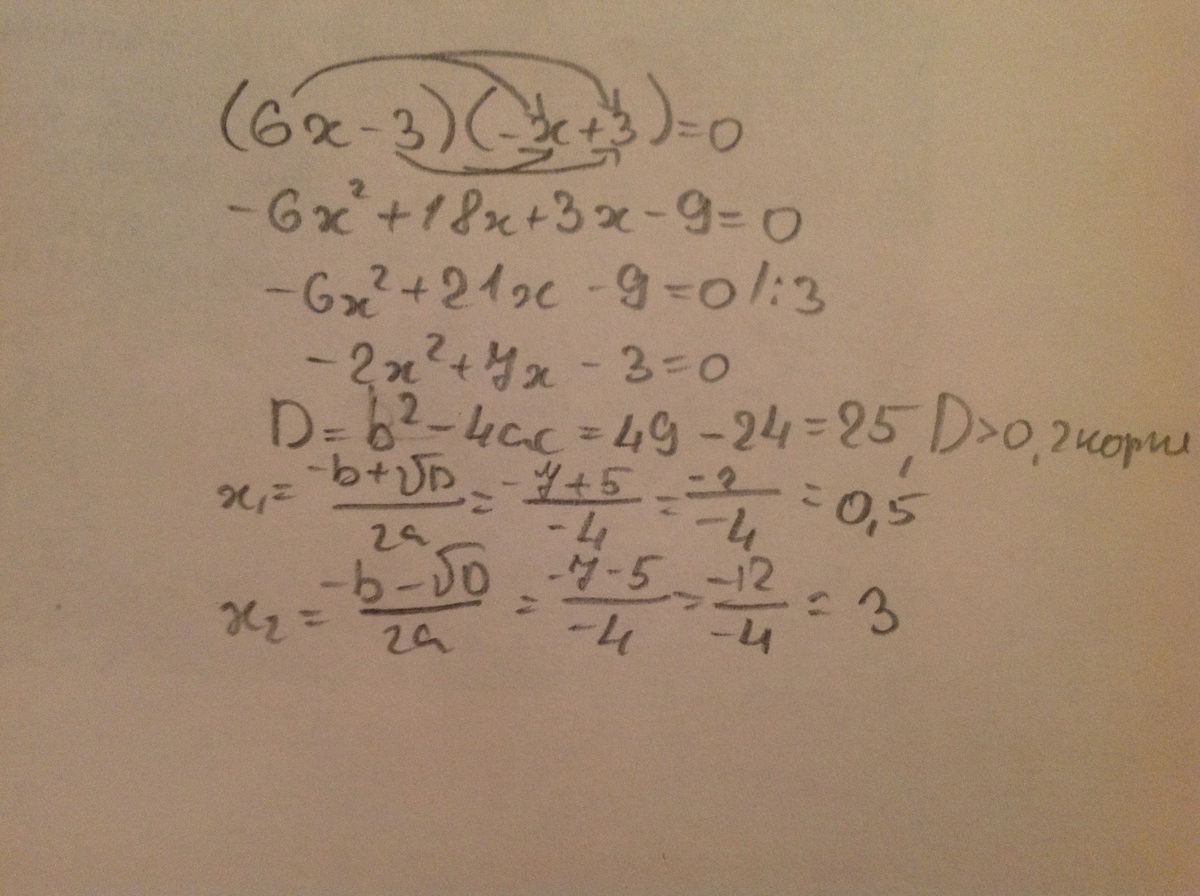 (6x-3)(-x+3)=0
-6x²+18x+3x-9=0
-6x²+21x-9=0 /:3
-2x²+7x-3=0
D=b²-4ac=49-24=25, D>0, 2 корня
x₁=(-b+√D)/2a=(-7+5)/-4=-2/-4=0,5
x₂=(-b-√D)/2a=(-7-5)/-4=-12/-4=3